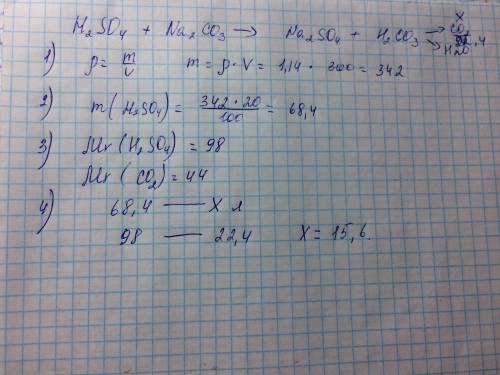 H₂SO₄ + Na₂CO₃ → Na₂SO₄ + H₂CO₃ → CO₂ x
→ H₂O 22,4
1) ρ = m/V m = ρ·V = 1,14 · 300 = 342
2) m(H₂SO₄) = 342·20/100 = 68,4
3) Mr(H₂SO₄) = 98
Mr(CO₂) = 44
4) 68,4 — X л
98 — 22,4 X = 15,6.